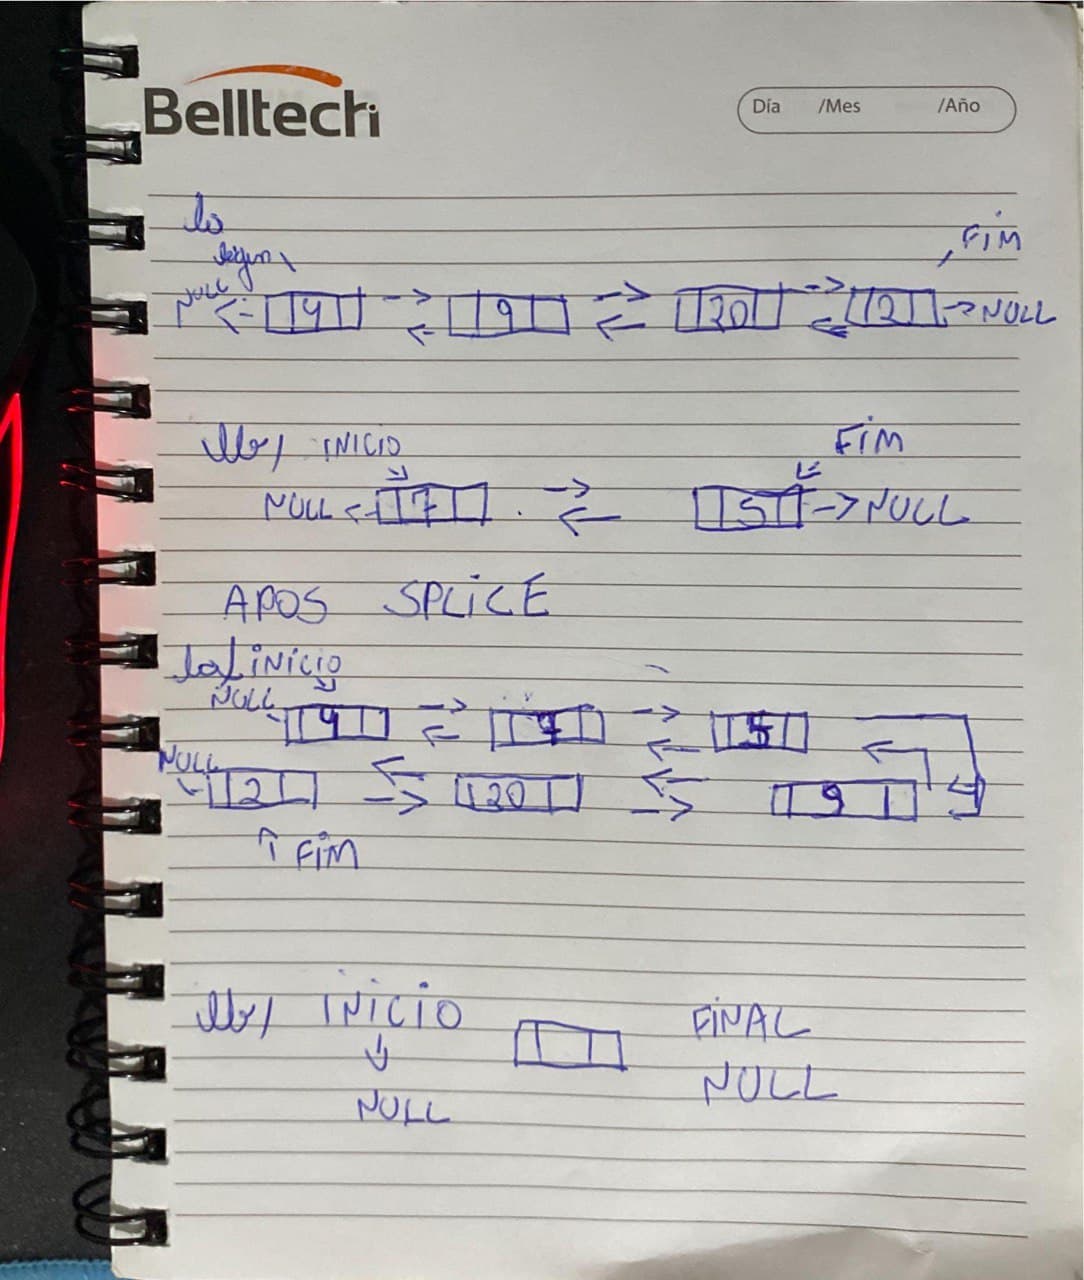 Belltech
Día /Mes /Año
la
begin FIM
NULL 4 9 20 2 NULL
lb/ INICIO FIM
NULL 7 5 NULL
APOS SPLICE
la/ INICIO
NULL 4 7 5
NULL 2 20 9
FIM
lb/ INICIO FINAL
NULL NULL